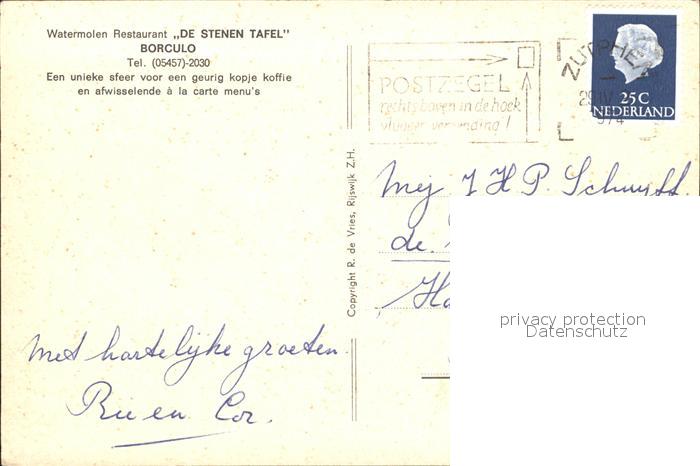 Watermolen Restaurant „DE STENEN TAFEL"
BORCULO
Tel. (05457)-2030
Een unieke sfeer voor een geurig kopje koffie
en afwisselende à la carte menu's
POSTZEGEL
rechts boven in de hoek
vlugger verzending!
ZUTPHEN
25C
NEDERLAND
Copyright R. de Vries, Rijswijk Z.H.
Mej J H P. Schmidt.
de.
Met hartelijke groeten
Rie en Cor.
privacy protection
Datenschutz